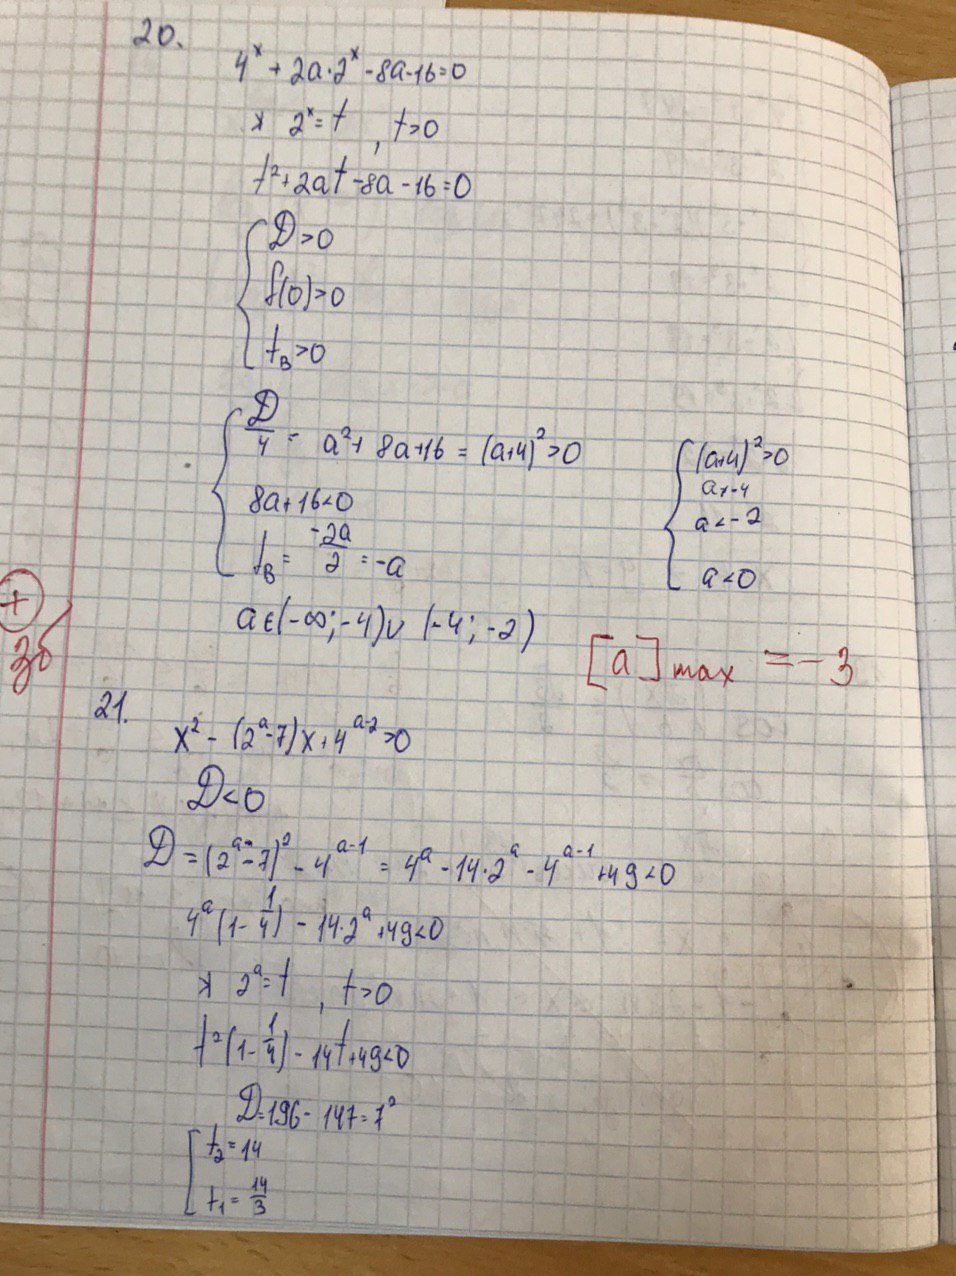 20.
4^x + 2a·2^x - 8a - 16 = 0
2^x = t, t>0
t² + 2at - 8a - 16 = 0
{ D>0
f(0)>0
t_B>0
{ D/4 = a² + 8a + 16 = (a+4)² > 0
8a + 16 < 0
t_B = -2a/2 = -a
{ (a+4)² > 0
a ≠ -4
a < -2
a < 0
a ∈ (-∞; -4) ∪ (-4; -2)
[a] max = -3
+
3б
21.
x² - (2^a - 7)x + 4^(a-2) > 0
D < 0
D = (2^a - 7)² - 4^(a-1) = 4^a - 14·2^a - 4^(a-1) + 49 < 0
4^a (1 - 1/4) - 14·2^a + 49 < 0
2^a = t, t>0
t² (1 - 1/4) - 14t + 49 < 0
D = 196 - 147 = 7²
[ t₂ = 14
t₁ = 14/3